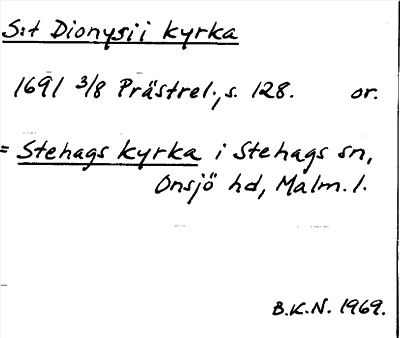 S:t Dionysii kyrka
1691 3/8 Prästrel., s. 128. or.
= Stehags kyrka i Stehags sn,
Onsjö hd, Malm. l.
B.K.N. 1969.